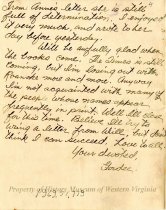 from Annie's letter she is still "
full of determination. I enjoyed
it very much, and wrote to her
day before yesterday.
Will be awfully glad when
the books come. The Times is still
coming, but I'm losing out with
Roanoke more and more. Anyway
I'm not acquainted with many of
the people whose names appear
frequently in print. Well I'll close
for this time. Believe I'll try to
wring a letter from Will, but don't
think I can succeed. Love to all.
Your devoted,
Property of Historical Museum of Western Virginia